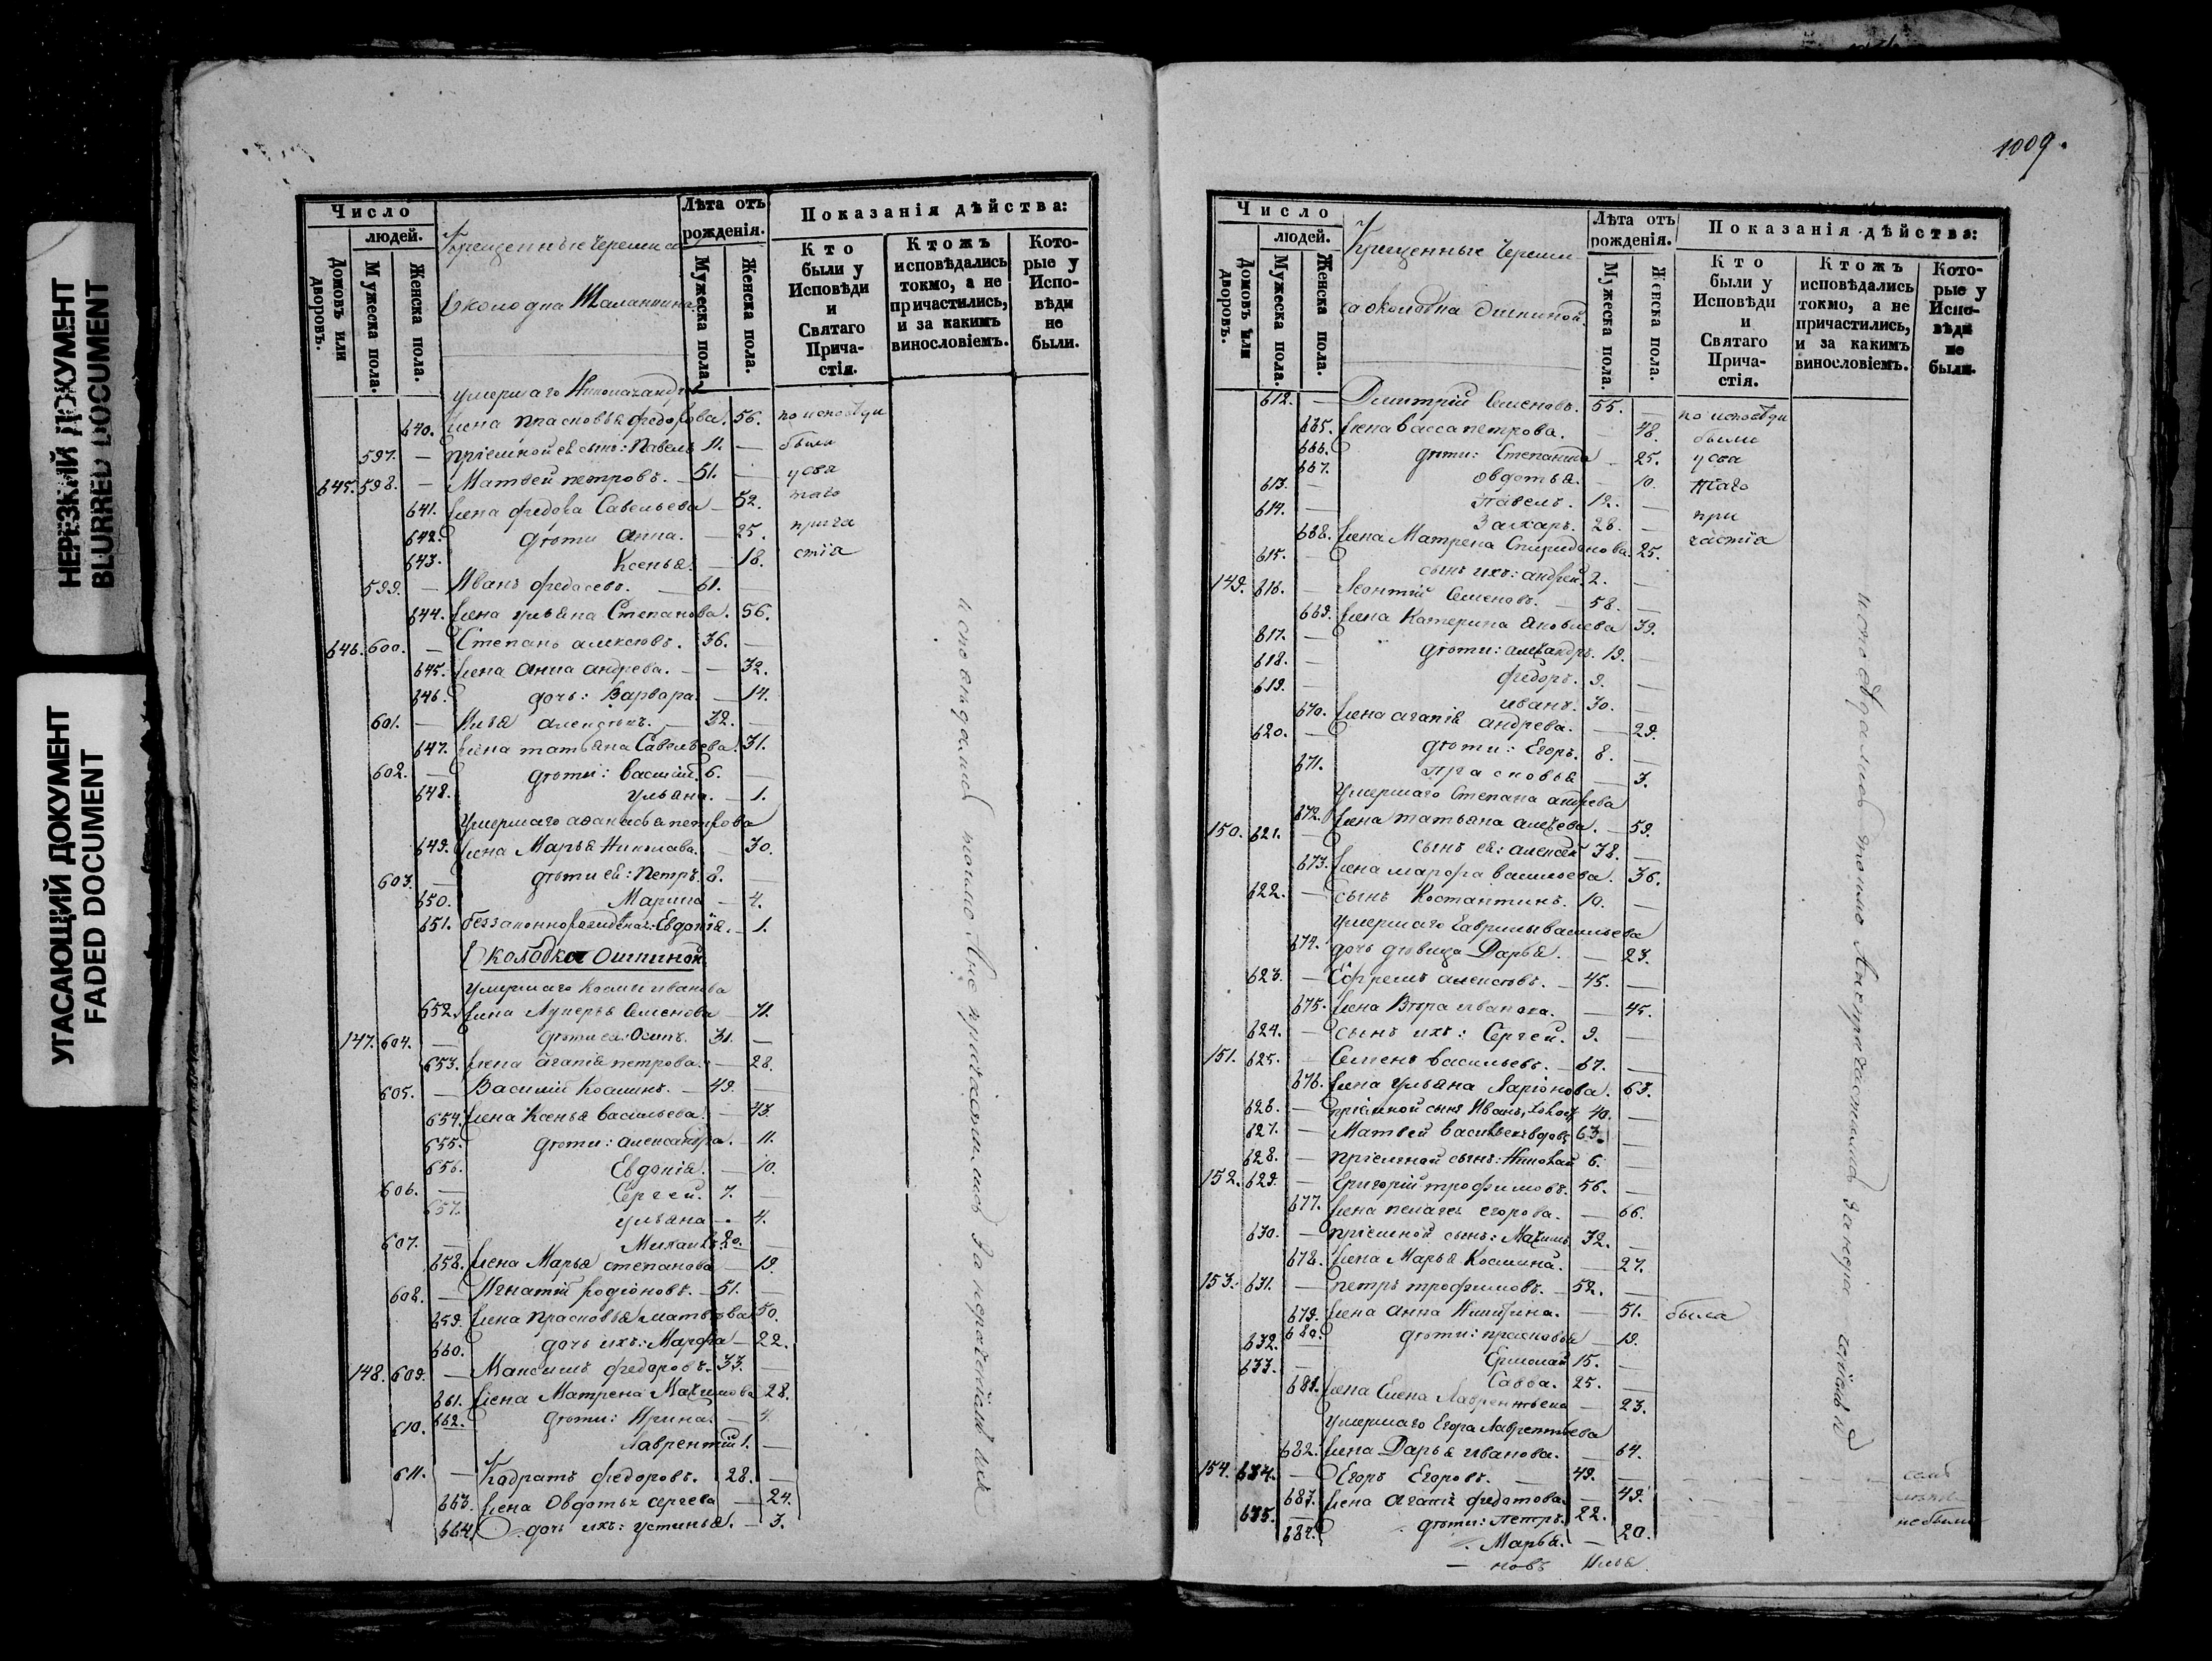 НЕРЕЗКИЙ ДОКУМЕНТ
BLURRED DOCUMENT
УГАСАЮЩИЙ ДОКУМЕНТ
FADED DOCUMENT
Число
людей.
Домовъ или дворовъ.
Мужеска пола.
Женска пола.
Крещенные Череми са
Околодка
Лѣта отъ рожденія.
Мужеска пола.
Женска пола.
Показанія дѣйства:
Кто были у Исповѣди и Святаго Прича-стія.
Ктожъ исповѣдались токмо, а не причастились, и за какимъ винословіемъ.
Кото-рые у Испо-вѣди не были.
умершаго
640. жена Прасковья Федорова. 56. по исповѣди
597. — пріемной сынъ: Павелъ 11. — были
645. 598. — Матвей Петровъ. — 51. — у свя
641. жена Федора Савельева — 52. таго
642. дѣти Анна. — 25. прича
643. Ксенья. — 18. стія
599. — Иванъ Федосеевъ. — 61.
644. жена Ульяна Степанова. 56.
646. 600. — Степанъ Алексѣевъ. 36. —
645. жена Анна Андреева. — 32.
646. дочь: Варвара. — 14.
601. — Илья Алексѣевъ. — 32. —
647. жена Татьяна Савельева. 31.
602. — дѣти: Василій. 6. —
648. Ульяна. — 1.
Умершаго Аѳанасья Петрова
649. жена Марья Николаева. — 30.
603. — дѣти ея: Петръ. 8. —
650. Марина — 4.
651. беззаконнорожденая: Евдокія. — 1.
Околодка Ошпиной
Умершаго Косьмы Иванова
652. жена Лукерья Семенова — 71.
147. 604. — дѣти ея: Осипъ. 31. —
653. жена Агапія Петрова. — 28.
605. — Василій Косминъ. — 49. —
654. жена Ксенья Васильева. — 43.
655. дѣти: Александра. — 11.
656. Евдокія. — 10.
606. — Сергей. 7. —
657. Ульяна — 4.
607. — Михаилъ. 20. —
658. жена Марья Степанова — 19.
608. — Игнатій Родіоновъ. — 51. —
659. жена Прасковья Матвѣева 50.
660. дочь ихъ: Марфа — 22.
148. 609. — Максимъ Федоровъ. 33. —
661. жена Матрена Максимова 28.
662. дѣти: Ирина. — 4.
610. Лаврентій 1. —
611. — Кодратъ Федоровъ. 28. —
663. жена Овдотья Сергеева — 24.
664. дочь ихъ: Устинья. — 3.
исповѣдались токмо А не причастились за
1009.
Число
людей.
Домовъ или дворовъ.
Мужеска пола.
Женска пола.
Крещенные Череми
са околодка
Лѣта отъ рожденія.
Мужеска пола.
Женска пола.
Показанія дѣйства:
Кто были у Исповѣди и Святаго Прича-стія.
Ктожъ исповѣдались токмо, а не причастились, и за какимъ винословіемъ.
Кото-рые у Испо-вѣди не были.
612. — Дмитрій Семеновъ. 55. — по исповѣди
665. жена Васса Петрова. — 48. были
666. дѣти: Степанида — 25. у свя
667. Овдотья. — 10. таго
613. — Павелъ. 12. — при
614. — Захаръ. 28. — частія
668. жена Матрена Спиридонова. 25.
615. — сынъ ихъ: Андрей. 2. —
149. 616. — Леонтій Семеновъ. — 58. —
669. жена Катерина Яковлева 39.
617. — дѣти: Александръ. 19. —
618. Федоръ. 9. —
619. — Иванъ. 30. —
670. жена Агапія Андреева. — 29.
620. — дѣти: Егоръ. 8. —
671. Прасковья — 3.
Умершаго Степана Андреева
672. жена Татьяна Алексѣева. — 59.
150. 621. — сынъ ея: Алексей 38. —
673. жена Марфа Васильева. 36.
622. — сынъ Костантинъ. 10. —
Умершаго Гаврилы Васильева
674. дочь дѣвица Дарья. — 23.
623. — Ефремъ Алексѣевъ. — 45. —
675. жена Вѣра Иванова. — 45.
624. — сынъ ихъ: Сергей. 9. —
151. 625. — Семенъ Васильевъ. — 67. —
676. жена Ульяна Ларіонова. 63.
626. — пріемной сынъ Иванъ, холост 40. —
627. — Матвей Васильевъ вдовъ 63. —
628. — пріемной сынъ: Николай 6. —
152. 629. — Григорій Трофимовъ. 56. —
677. жена Пелагея Егорова. — 66.
630. — пріемной сынъ: Максимъ 32. —
678. жена Марья Косьмина. — 27.
153. 631. — Петръ Трофимовъ. — 52. —
679. жена Анна Никитина. — 51. была
680. дѣти: Прасковья — 19.
632. Ермолай 15. —
633. — Савва. 25. —
681. жена Елена Лаврентьева — 23.
Умершаго Егора Лаврентьева
682. жена Дарья Иванова. — 64.
154. 634. — Егоръ Егоровъ. — 49. —
683. жена Агапія Федотова. — 49.
635. дѣти: Петръ. 22. — не были
684. Марья. — 20.
исповѣдались токмо А не причастились за